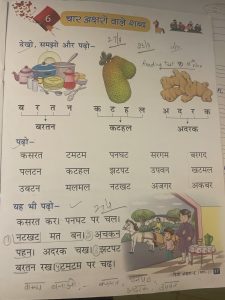 6 चार अक्षरों वाले शब्द
देखो, समझो और पढ़ो-
Reading Test
ब र त न क ट ह ल अ द र क
बरतन कटहल अदरक
पढ़ो-
कसरत टमटम पनघट सरगम बरगद
पलटन कटहल झटपट उपवन खटमल
उबटन मलमल नटखट अजगर अकबर
यह भी पढ़ो-
कसरत कर। पनघट पर चल।
नटखट मत बन। अचकन
पहन। अदरक चख। झटपट
बरतन रख। टमटम पर चढ़।